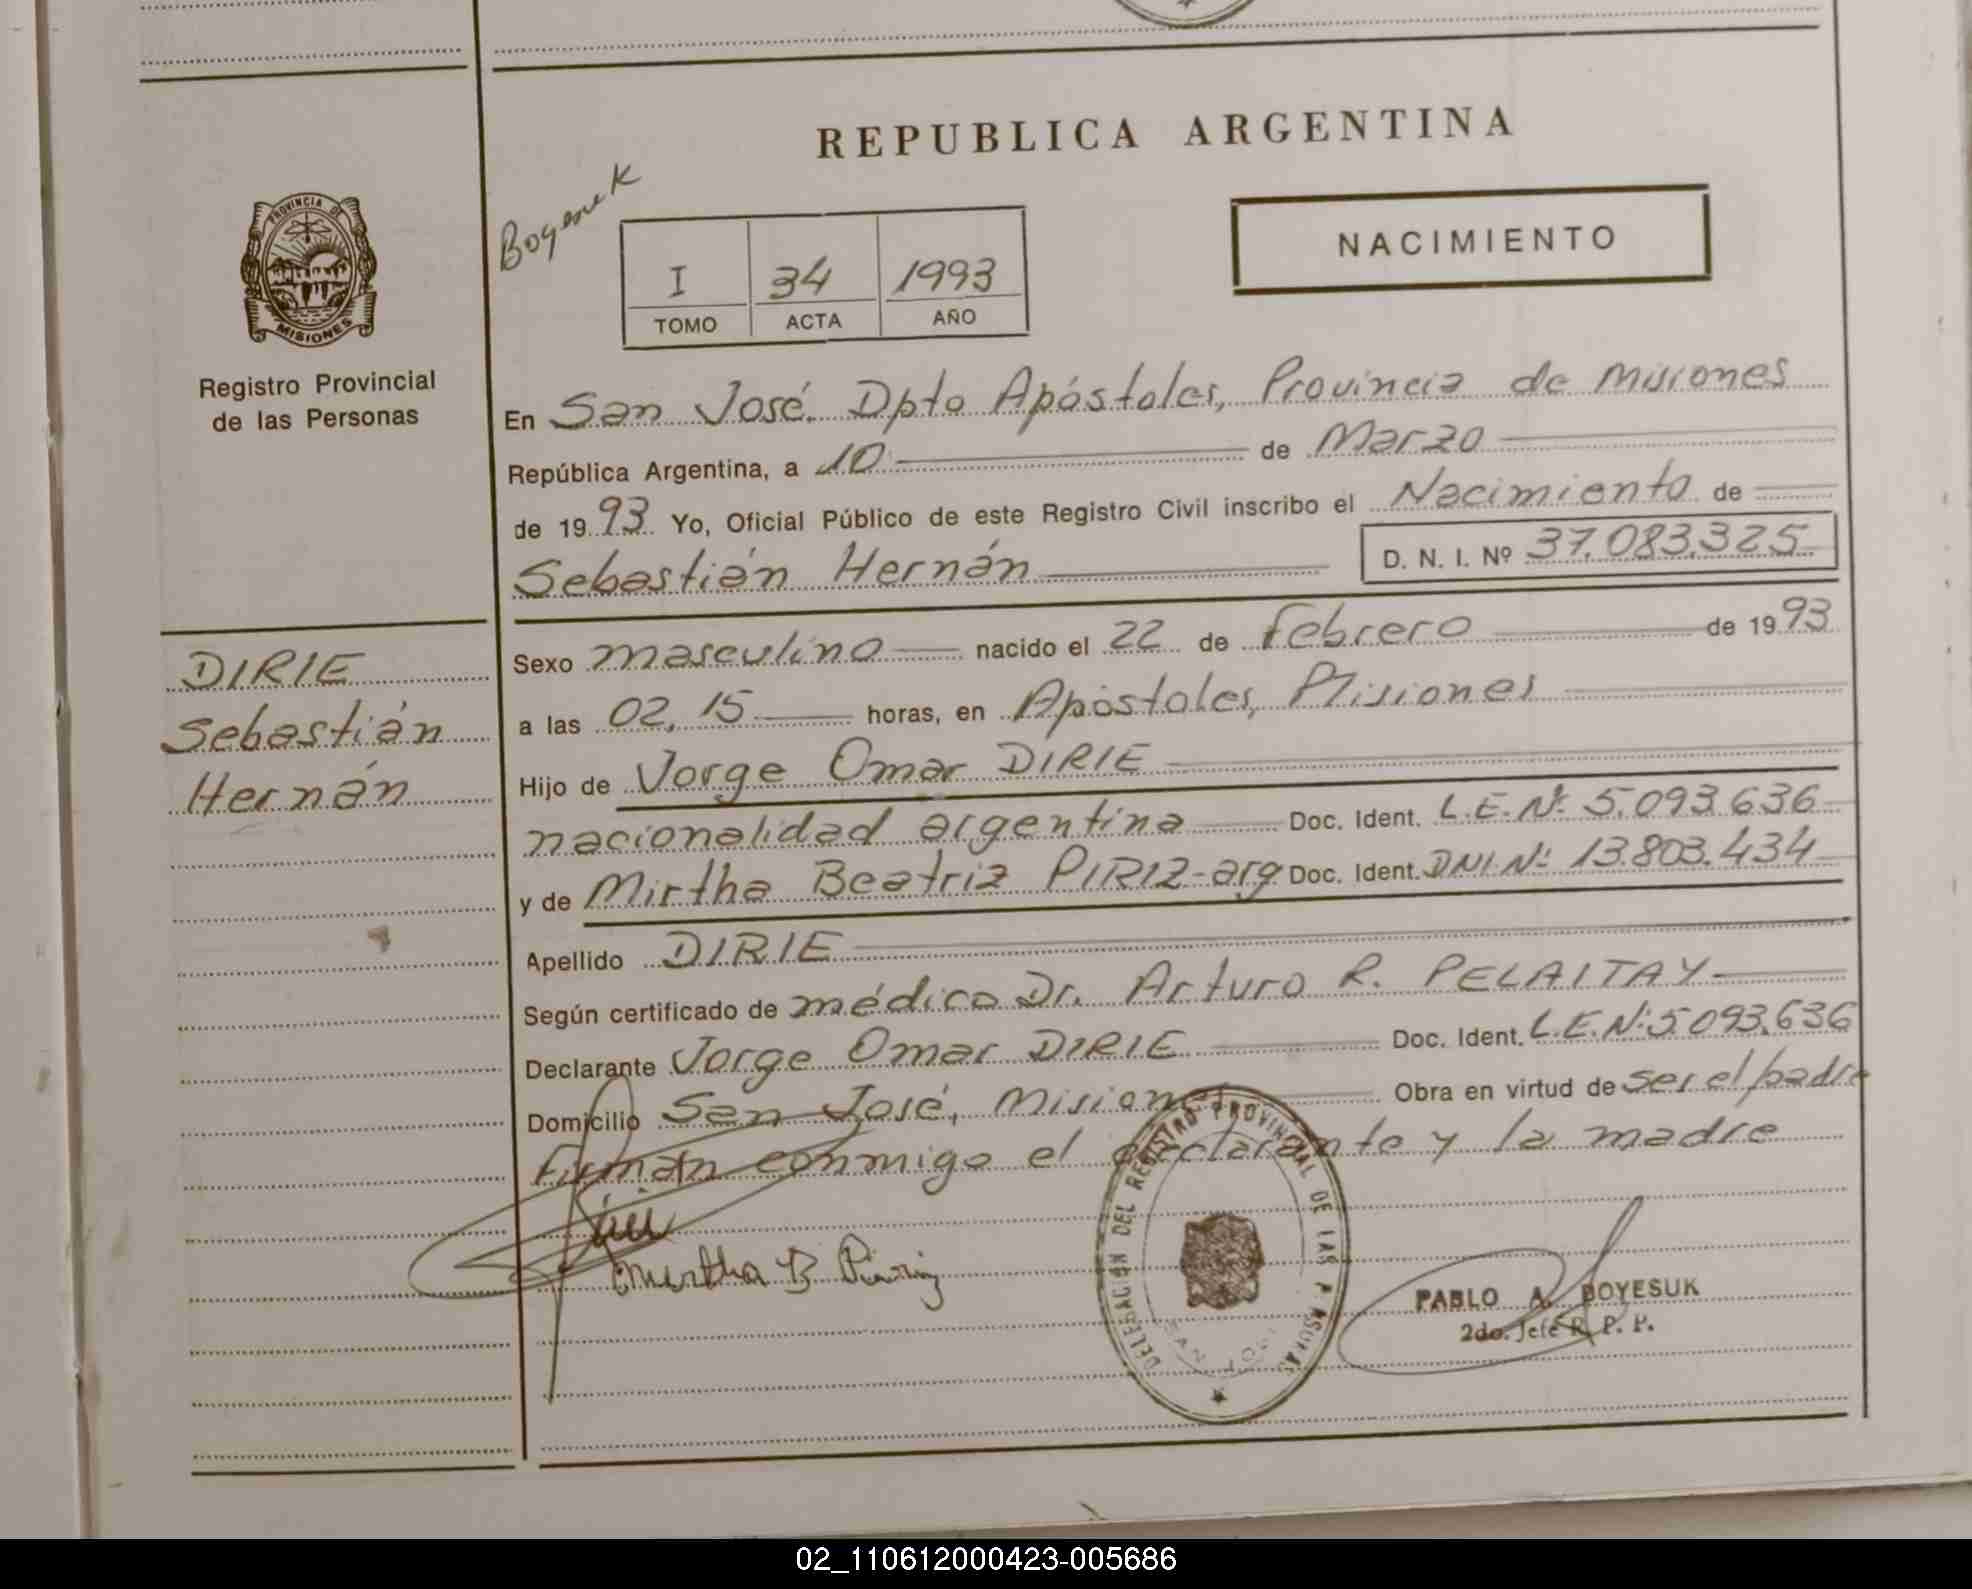 REPUBLICA ARGENTINA
NACIMIENTO
I 34 1993
TOMO ACTA AÑO
PROVINCIA DE
MISIONES
Registro Provincial
de las Personas
En San José. Dpto Apóstoles, Provincia de Misiones
República Argentina, a 10 de Marzo
de 1993. Yo, Oficial Público de este Registro Civil inscribo el Nacimiento de
Sebastián Hernán D. N. I. Nº 37.083.325
DIRIE
Sebastián
Hernán
Sexo masculino nacido el 22 de Febrero de 1993
a las 02,15 horas, en Apóstoles, Misiones
Hijo de Jorge Omar DIRIE
nacionalidad argentina Doc. Ident. L.E.Nº 5.093.636
y de Mirtha Beatriz PIRIZ-arg Doc. Ident. DNI.Nº 13.803.434
Apellido DIRIE
Según certificado de médico Dr. Arturo R. PELAITAY
Declarante Jorge Omar DIRIE Doc. Ident. L.E.Nº 5.093.636
Domicilio San José, Misiones Obra en virtud de ser el padre
Firman conmigo el declarante y la madre
Mirtha B Piriz
DELEGACION DEL REGISTRO PROVINCIAL DE LAS PERSONAS
SAN JOSE
PABLO A. BOYESUK
2do. Jefe R. P. P.
02_110612000423-005686